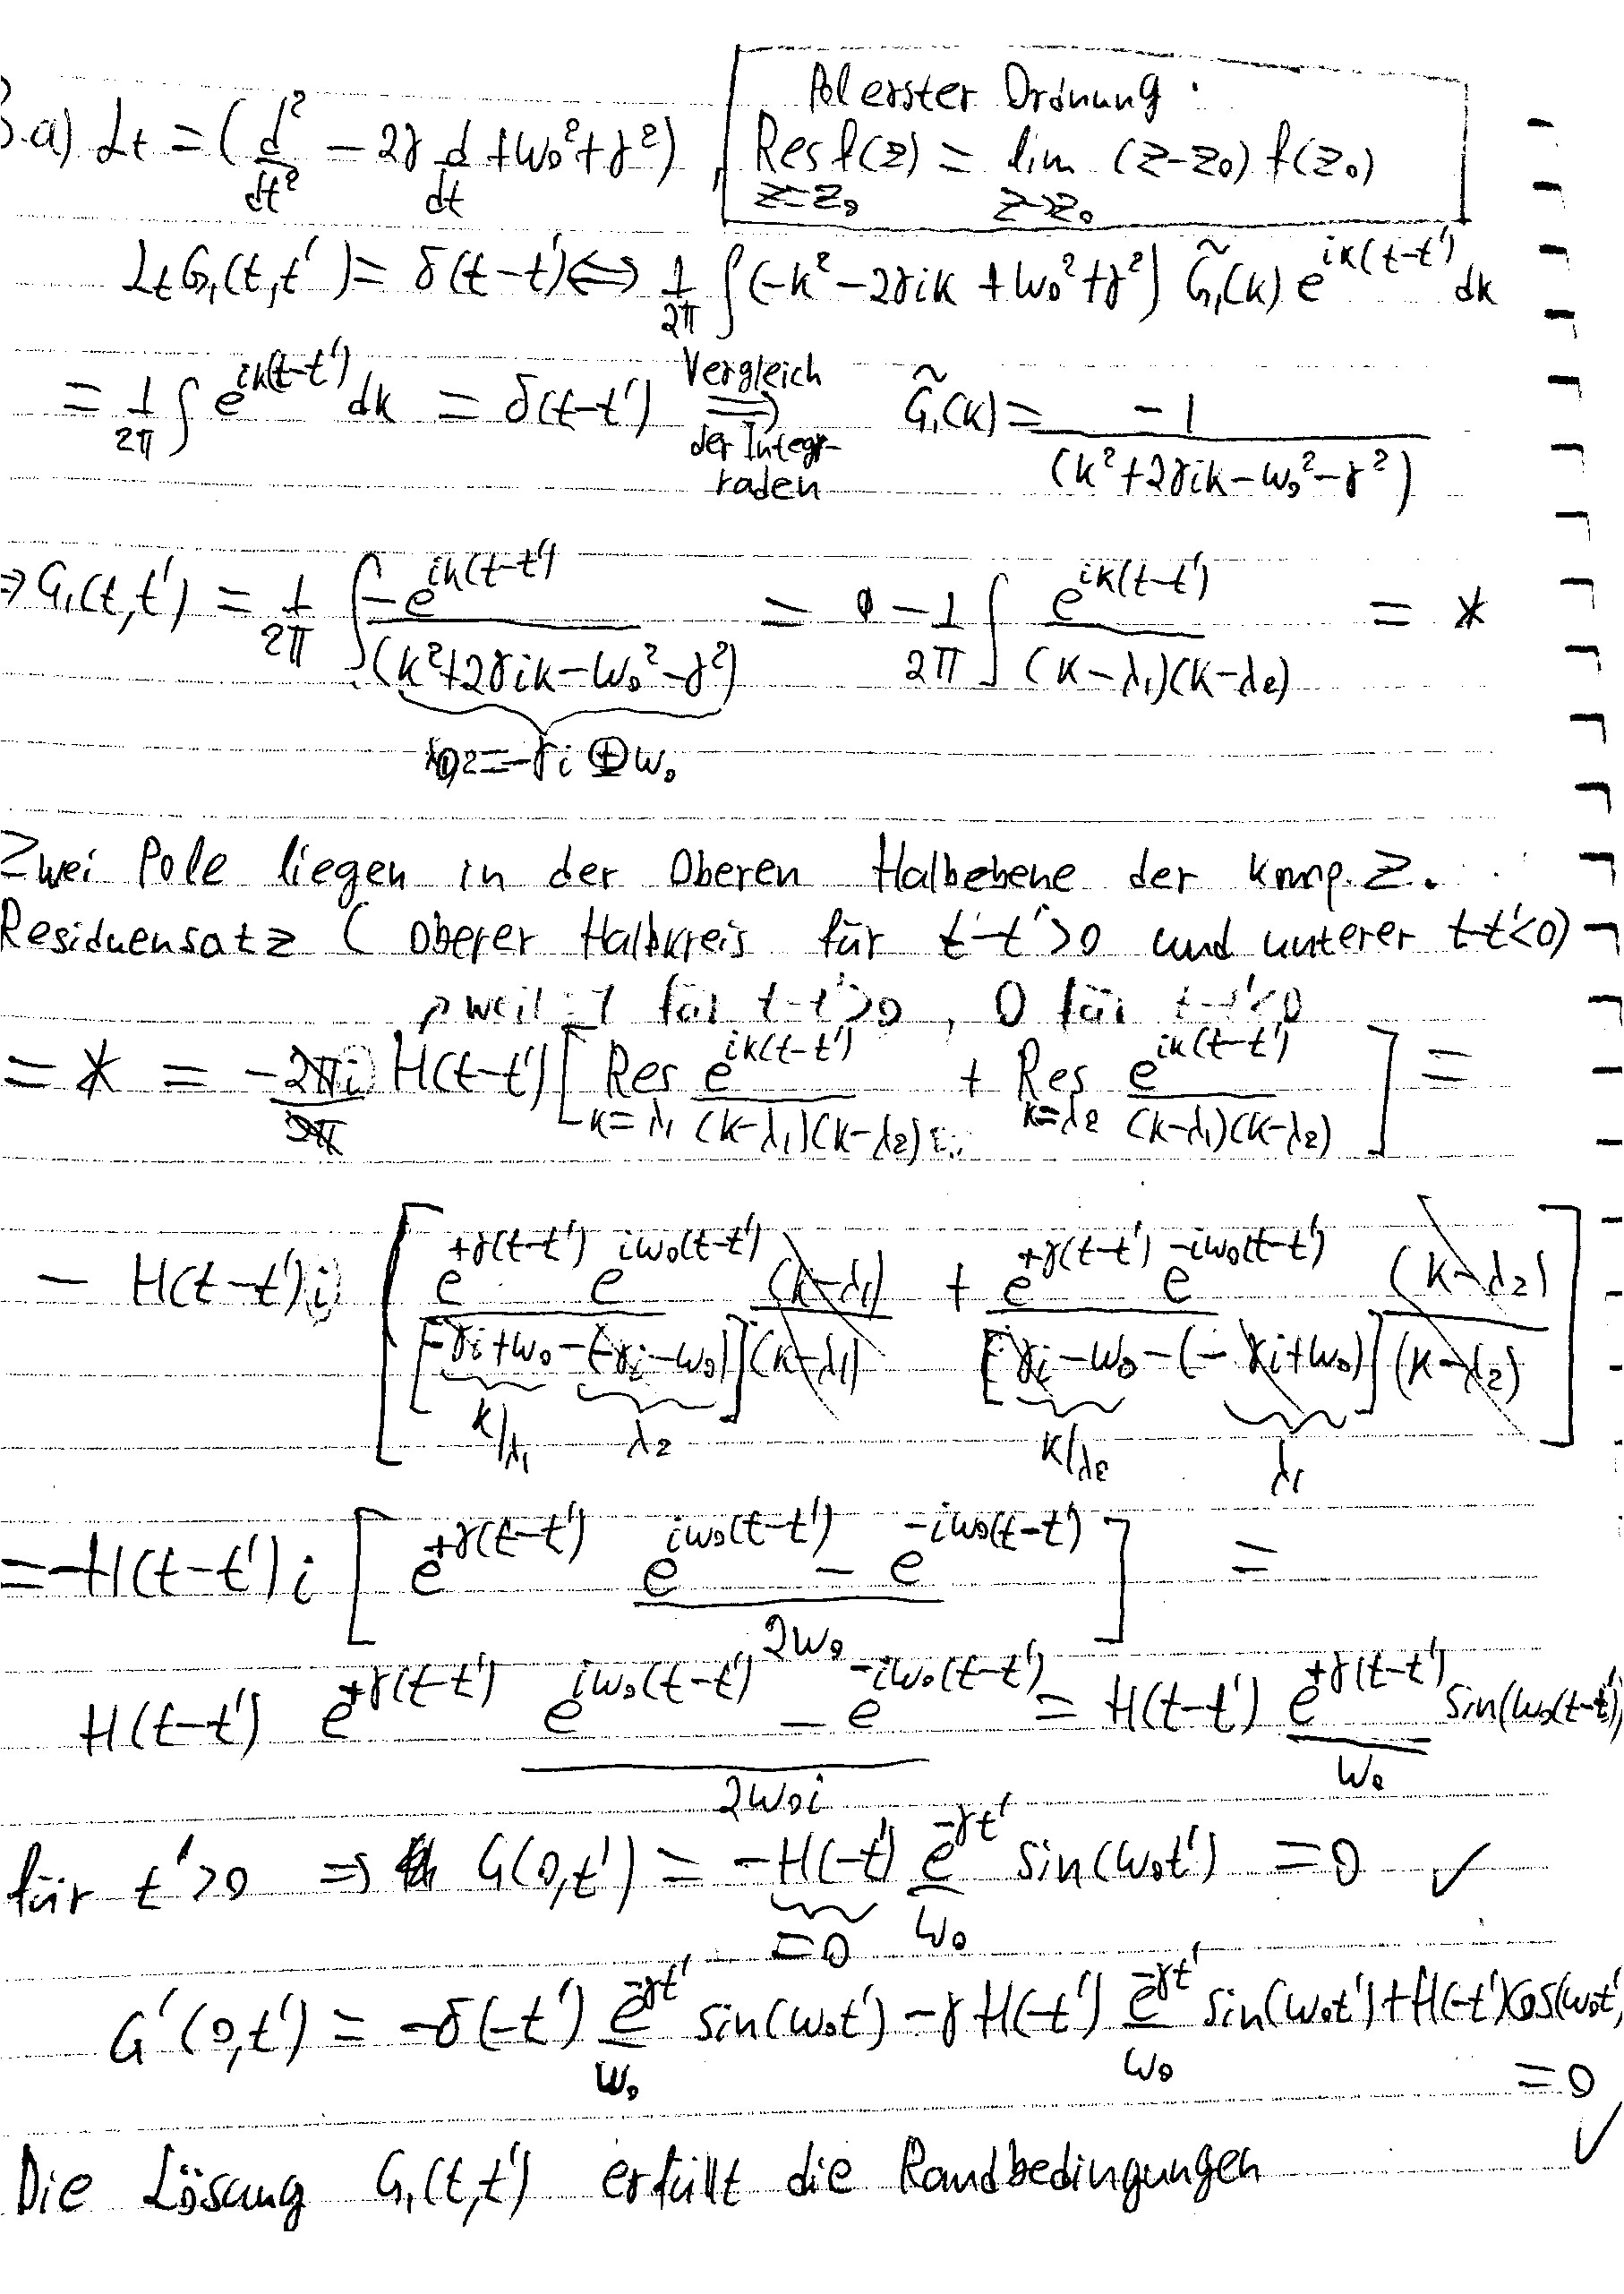 3.a) Lt = (d²/dt² − 2γ d/dt + ω₀² + γ²),
Pol erster Ordnung:
Res f(z) = lim (z−z₀) f(z₀)
z=z₀ z→z₀
LtG₁(t,t') = δ(t−t') ⟺ 1/2π ∫(−k² − 2γik + ω₀² + γ²) G̃₁(k) e^{ik(t−t')} dk
= 1/2π ∫ e^{ik(t−t')} dk = δ(t−t') Vergleich ⟹ der Integr-raden G̃₁(k) = −1/(k²+2γik−ω₀²−γ²)
⇒ G₁(t,t') = 1/2π ∫ −e^{ik(t−t')}/(k²+2γik−ω₀²−γ²) = −1/2π ∫ e^{ik(t−t')}/(k−λ₁)(k−λ₂) = *
λ₁,₂ = −γi ± ω₀
Zwei Pole liegen in der Oberen Halbebene der komp. Z.
Residuensatz ( Oberer Halbkreis für t−t'>0 und unterer t−t'<0)
↗ weil: 1 für t−t'>0 , 0 für t−t'<0
= * = −2πi/2π H(t−t') [Res_{k=λ₁} e^{ik(t−t')}/(k−λ₁)(k−λ₂) + Res_{k=λ₂} e^{ik(t−t')}/(k−λ₁)(k−λ₂)] =
− H(t−t')i [e^{+γ(t−t')} e^{iω₀(t−t')}/[−γi+ω₀−(−γi−ω₀)] (k−λ₁)/(k−λ₁) + e^{+γ(t−t')} e^{−iω₀(t−t')}/[−γi−ω₀−(−γi+ω₀)] (k−λ₂)/(k−λ₂)]
k/λ₁ λ₂ k/λ₂ λ₁
= −H(t−t')i [e^{+γ(t−t')} (e^{iω₀(t−t')} − e^{−iω₀(t−t')})/2ω₀] =
H(t−t') e^{+γ(t−t')} (e^{iω₀(t−t')} − e^{−iω₀(t−t')})/2ω₀i = H(t−t') e^{+γ(t−t')}/ω₀ sin(ω₀(t−t'))
für t'>0 ⇒ G(0,t') = −H(−t') e^{−γt'}/ω₀ sin(ω₀t') = 0 ✓
=0
G'(0,t') = −δ(−t') e^{−γt'}/ω₀ sin(ω₀t') − γH(−t') e^{−γt'}/ω₀ sin(ω₀t') + H(−t')cos(ω₀t'
= 0 ✓
Die Lösung G₁(t,t') erfüllt die Randbedingungen